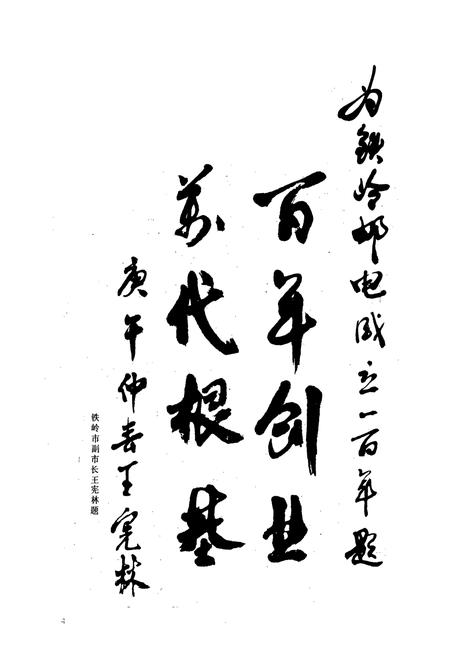 为铁岭邮电成立一百年题
百年创业
万代根基
庚午仲春王宪林
铁岭市副市长王宪林题